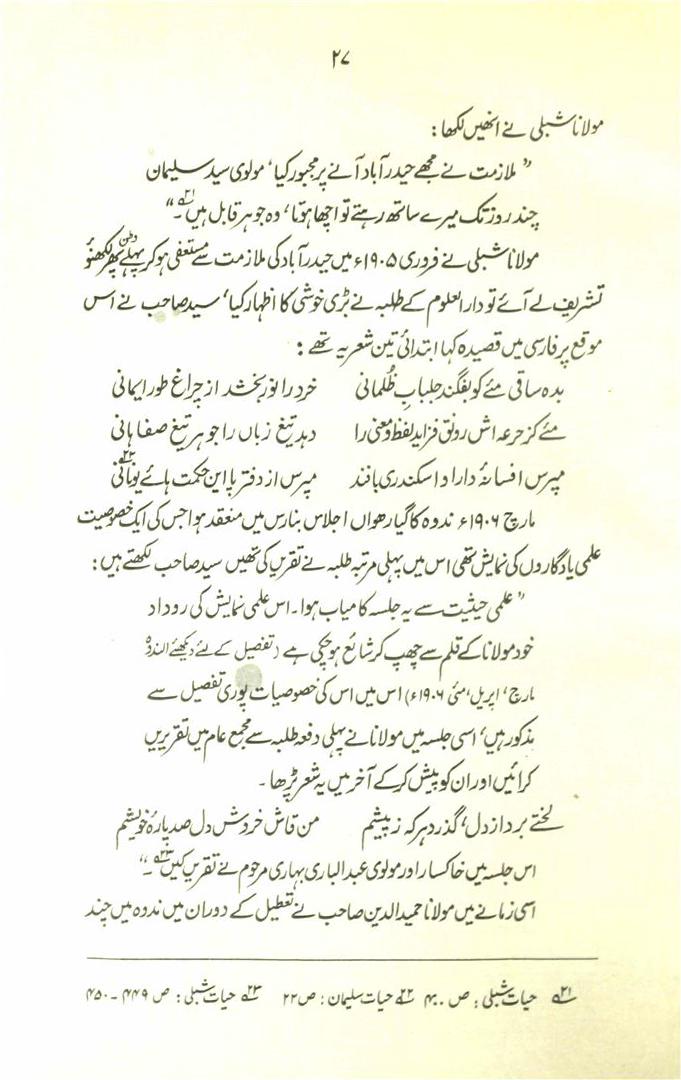 ۲۷
مولانا شبلی نے انھیں لکھا:
” ملازمت نے مجھے حیدرآباد آنے پر مجبور کیا‘ مولوی سید سلیمان
چند روز تک میرے ساتھ رہتے تو اچھا ہوتا‘ وہ جوہر قابل ہیں ۲۱؎۔“
مولانا شبلی نے فروری ۱۹۰۵ء میں حیدرآباد کی ملازمت سے مستعفی ہو کر پہلے وطن پھر لکھنؤ
تشریف لے آئے تو دارالعلوم کے طلبہ نے بڑی خوشی کا اظہار کیا‘ سید صاحب نے اس
موقع پر فارسی میں قصیدہ کہا ابتدائی تین شعر یہ تھے:
بدہ ساقی مئے کو بفگند جلبابِ ظُلمانی خرد را نور بخشد از چراغ طور ایمانی
مئے کز جرعہ اش رونق فزاید لفظ و معنی را دہد تیغ زباں را جوہر تیغ صفاہانی
مپرس افسانۂ دارا و اسکندری بافند مپرس از دفتر پا این حکمت ہائے یونانی ۲۲؎
مارچ ۱۹۰۶ء ندوہ کا گیارھواں اجلاس بنارس میں منعقد ہوا جس کی ایک خصوصیت
علمی یادگاروں کی نمایش تھی اس میں پہلی مرتبہ طلبہ نے تقریریں کی تھیں سید صاحب لکھتے ہیں:
” علمی حیثیت سے یہ جلسہ کامیاب ہوا۔ اس علمی نمایش کی روداد
خود مولانا کے قلم سے چھپ کر شائع ہو چکی ہے (تفصیل کے لئے دیکھئے الندوہ
مارچ‘ اپریل‘ مئی ۱۹۰۶ء) اس میں اس کی خصوصیات پوری تفصیل سے
مذکور ہیں‘ اسی جلسہ میں مولانا نے پہلی دفعہ طلبہ سے مجمع عام میں تقریریں
کرائیں اور ان کو پیش کر کے آخر میں یہ شعر پڑھا۔
لختے برد از دل‘ گذرد ہر کہ ز پیشم من قاش خروش دل صد پارۂ خویشم
اس جلسہ میں خاکسار اور مولوی عبدالباری بہاری مرحوم نے تقریریں کیں ۲۳؎۔“
اسی زمانے میں مولانا حمید الدین صاحب نے تعطیل کے دوران میں ندوہ میں چند
۲۱؎ حیات شبلی: ص ۴۰۰ ۲۲؎ حیات سلیمان: ص ۲۲ ۲۳؎ حیات شبلی: ص ۴۴۹ - ۴۵۰